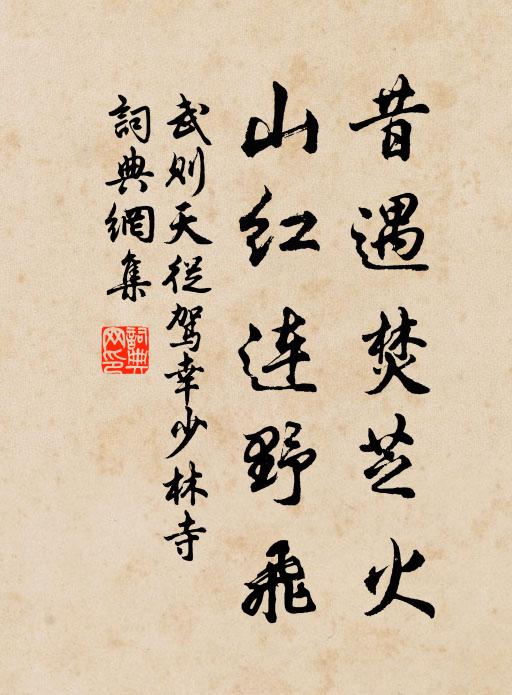 昔遇焚芝火
山红连野飛
武则天從駕幸少林寺
詞典網集
詞典網印